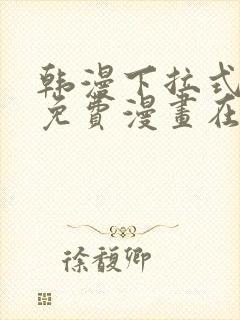 韩漫下拉式
免費漫畫在
徐馥卿